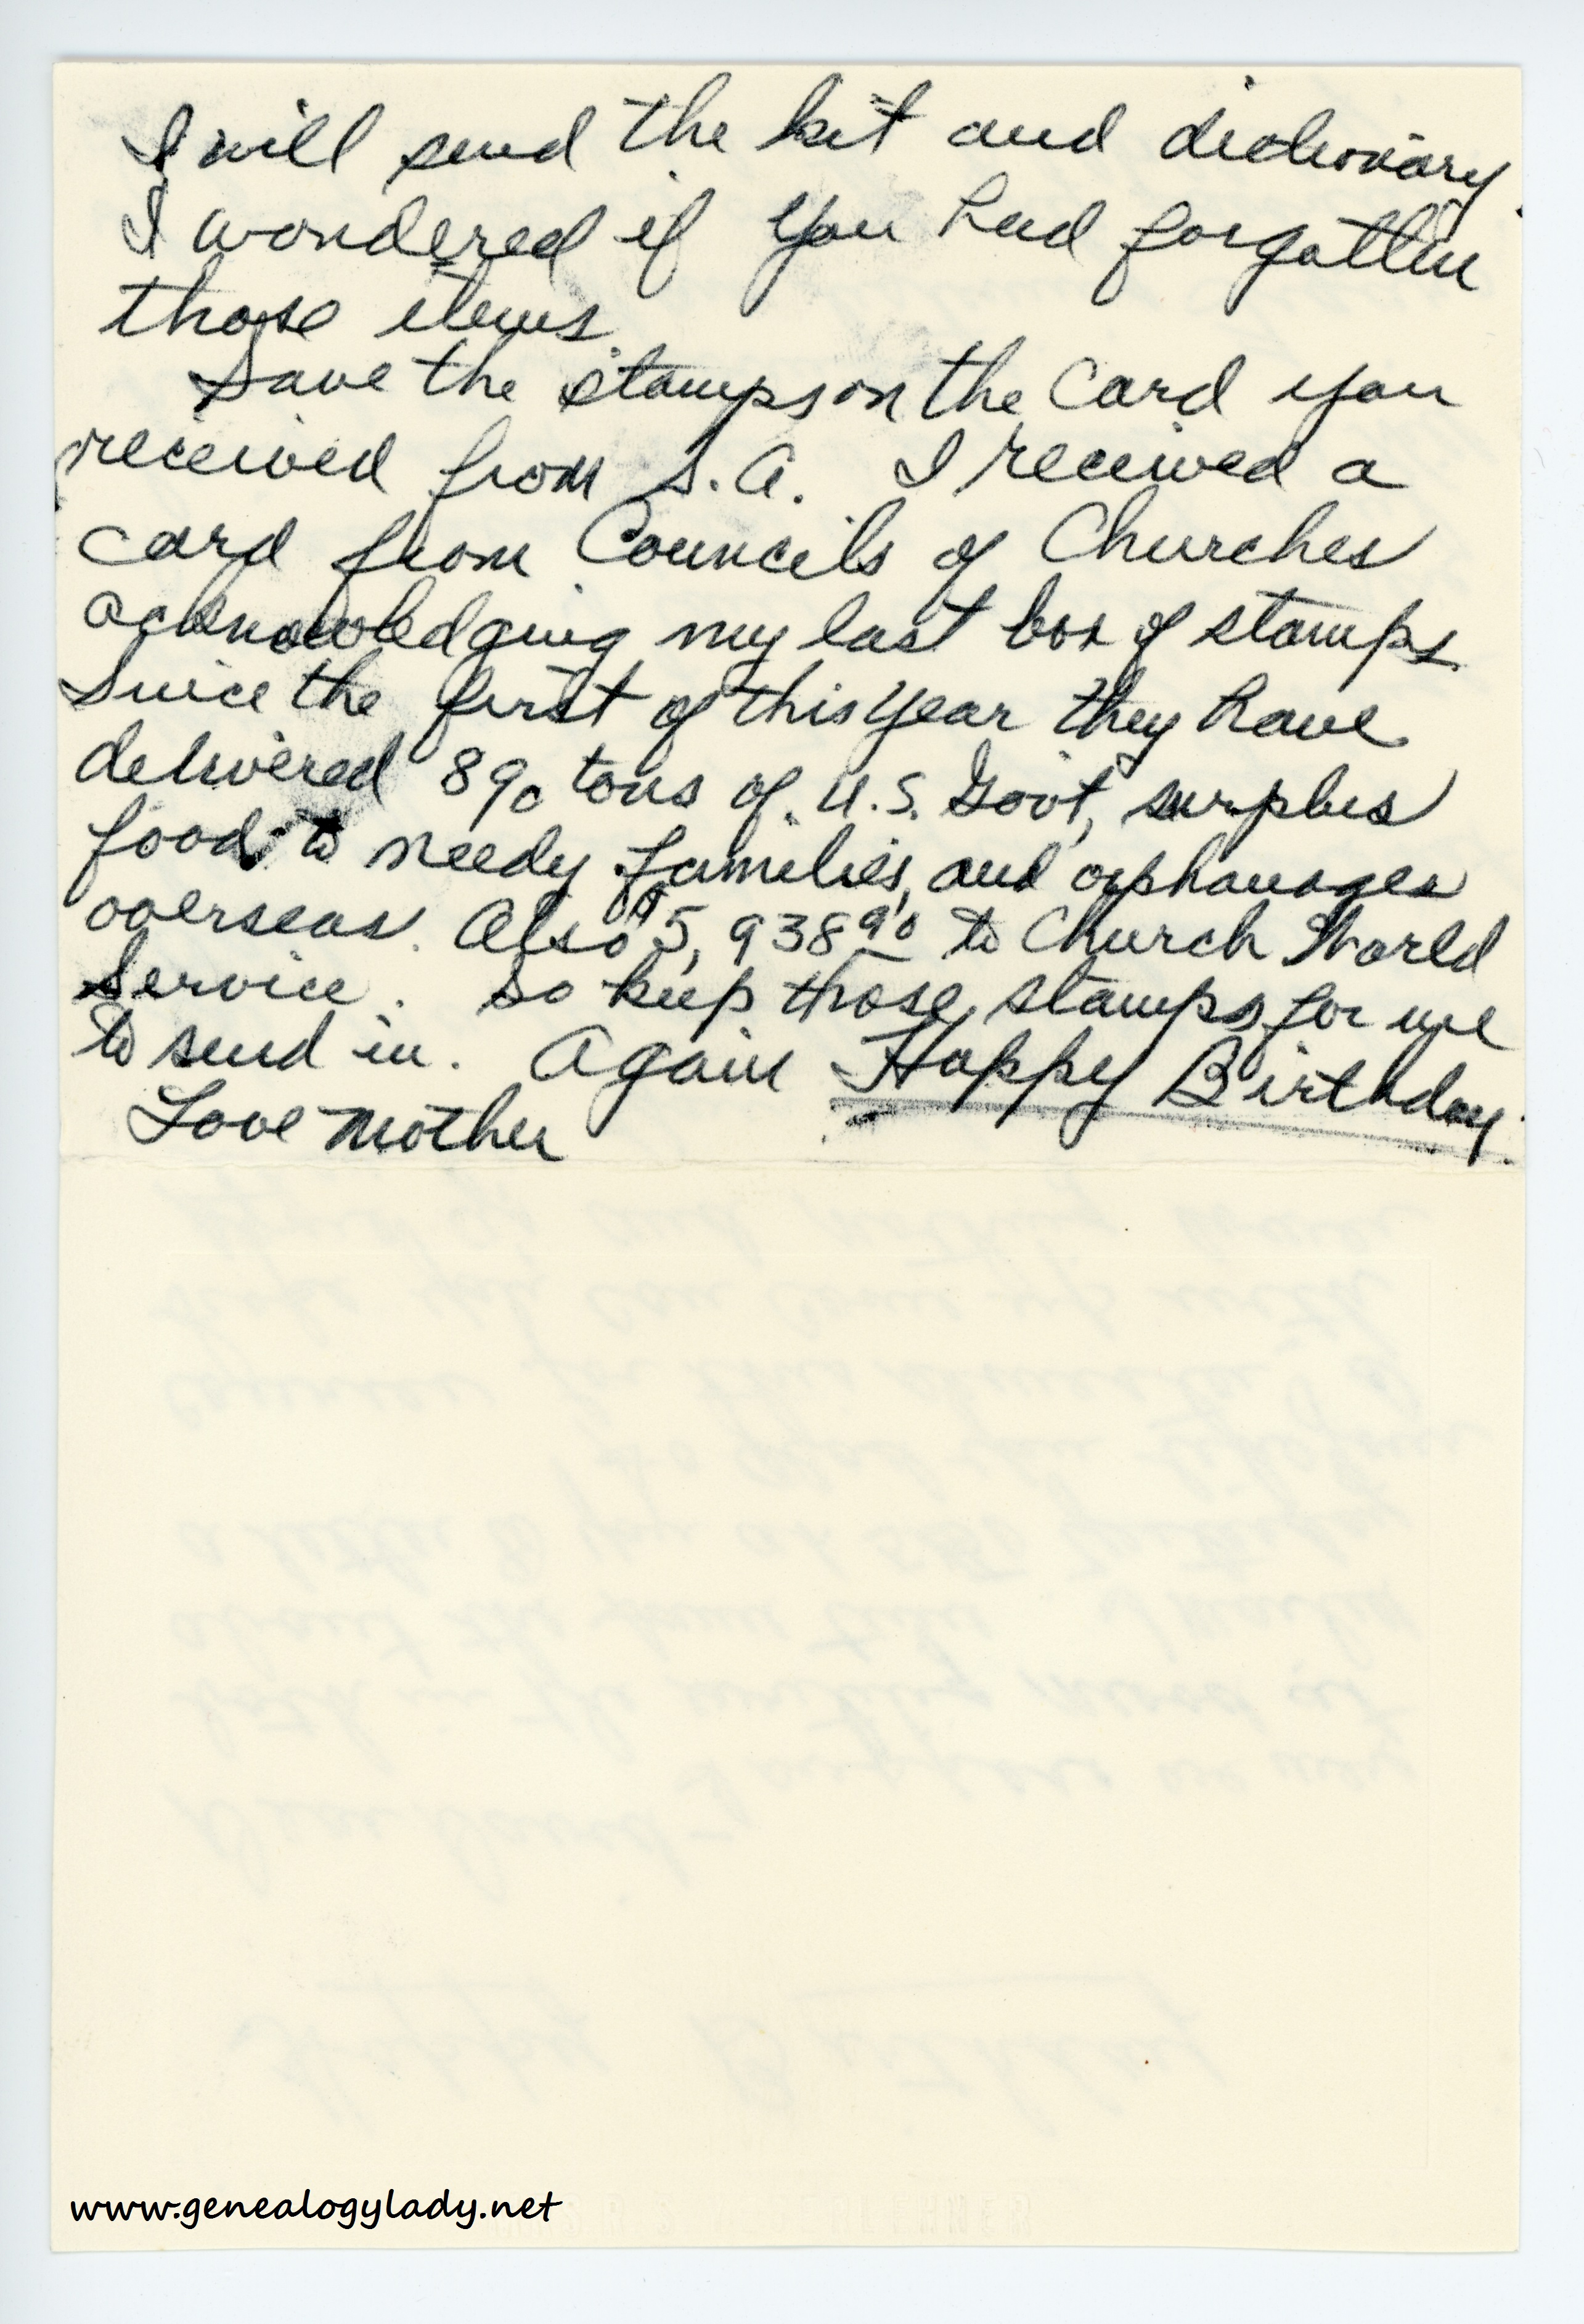 I will send the kit and dictionary.
I wondered if you had forgotten
those items.
Save the stamps on the card you
received from S.A. I received a
card from Councils of Churches
acknowledging my last box of stamps.
Since the first of this year they have
delivered 890 tons of U.S. Gov't, surplus
food to needy families, and orphanages
overseas. Also $5,938.90 to Church World
Service. So keep those stamps for me
to send in. Again Happy Birthday.
Love Mother
www.genealogylady.net